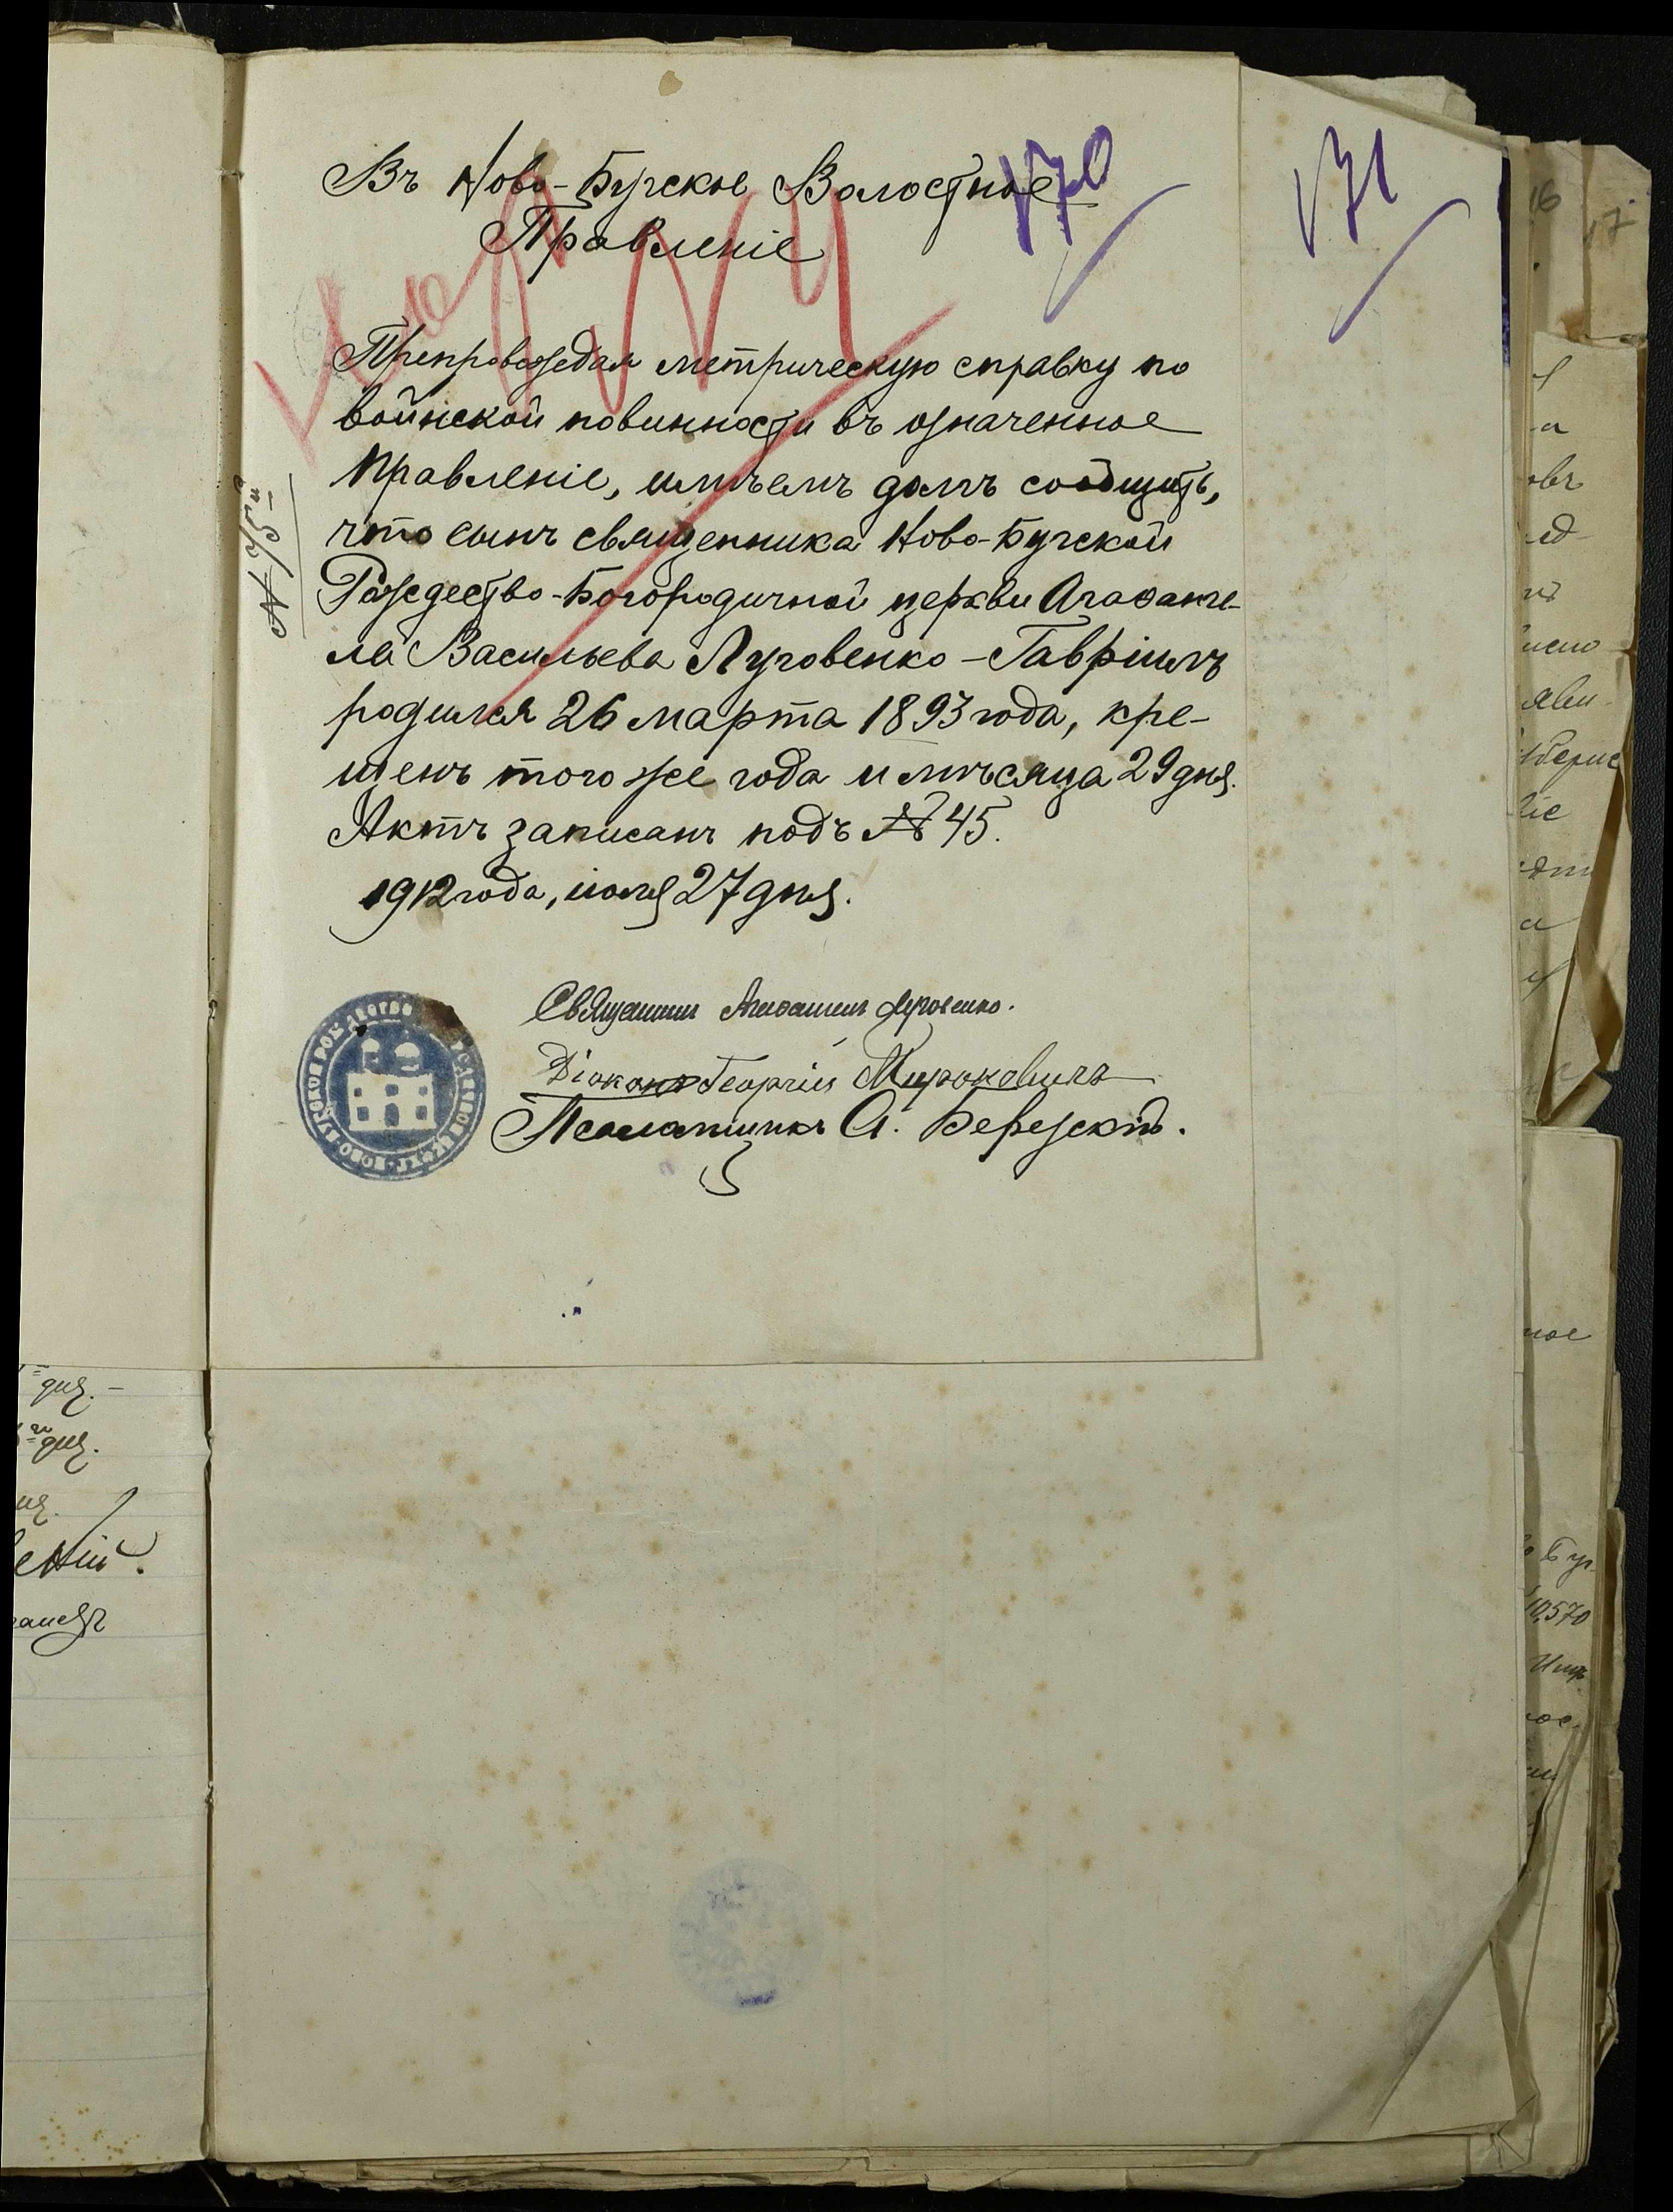 Въ Ново-Бугское Волостное
Правленіе
170
171
Препровождая метрическую справку по
воинской повинности въ означенное
Правленіе, имѣемъ долгъ сообщить,
что сынъ священника Ново-Бугской
Рождество-Богородичной церкви Агаѳанге-
ла Васильева Луговенко – Гавріилъ
родился 26 марта 1893 года, кре-
щенъ того же года и мѣсяца 29 дня.
Актъ записанъ подъ № 45.
1912 года, іюля 27 дня.
Священникъ Агаѳангелъ Луговенко.
Діаконъ Георгій Мироновичъ
Псаломщикъ А. Березскій.
дня. –
дня.
10,570